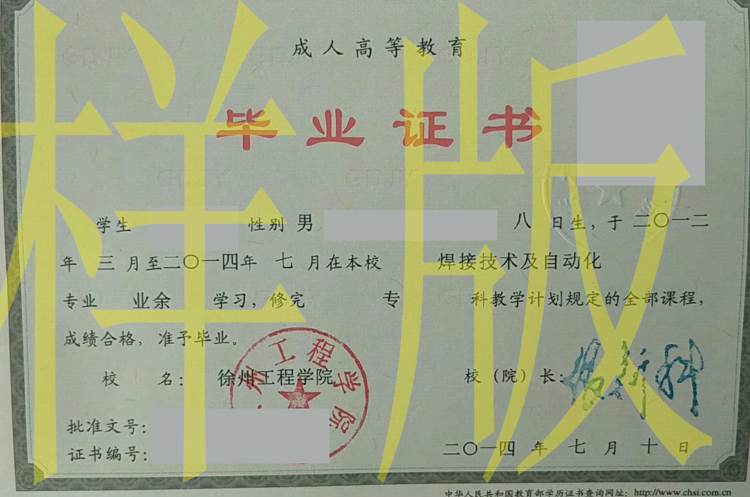 成人高等教育
毕业证书
学生 性别 男 八 日生，于 二〇一二
年 三 月至二〇一四年 七 月在本校 焊接技术及自动化
专业 业余 学习，修完 专 科教学计划规定的全部课程，
成绩合格，准予毕业。
校 名： 徐州工程学院 校（院）长：
批准文号：
证书编号： 二〇一四 年 七 月 十 日
中华人民共和国教育部学历证书查询网址：http://www.chsi.com.cn
样版
徐州工程学院